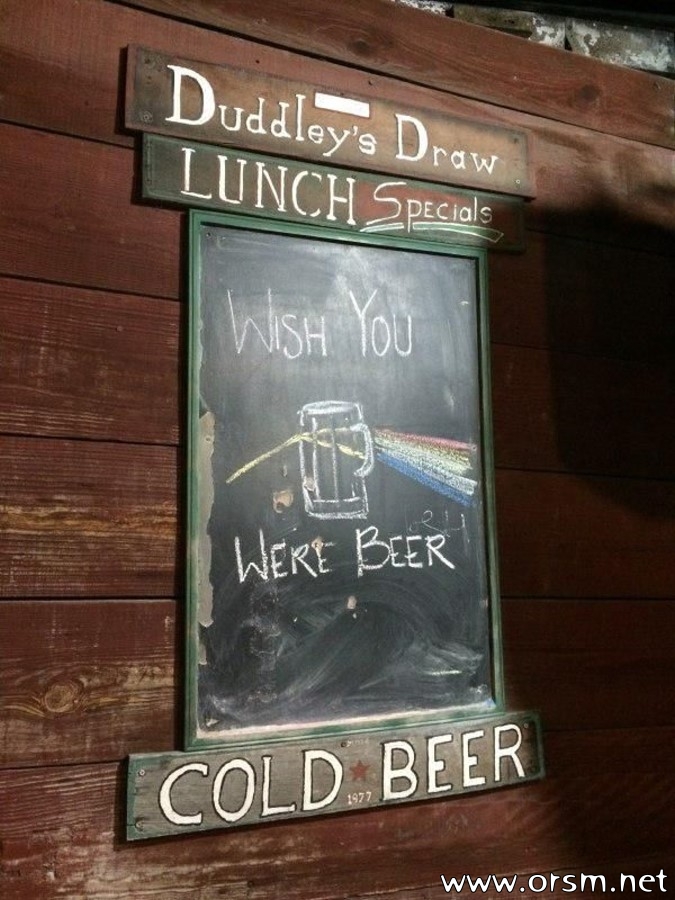 Duddley's Draw
LUNCH Specials
WISH YOU
WERE BEER
COLD BEER
1977
www.orsm.net